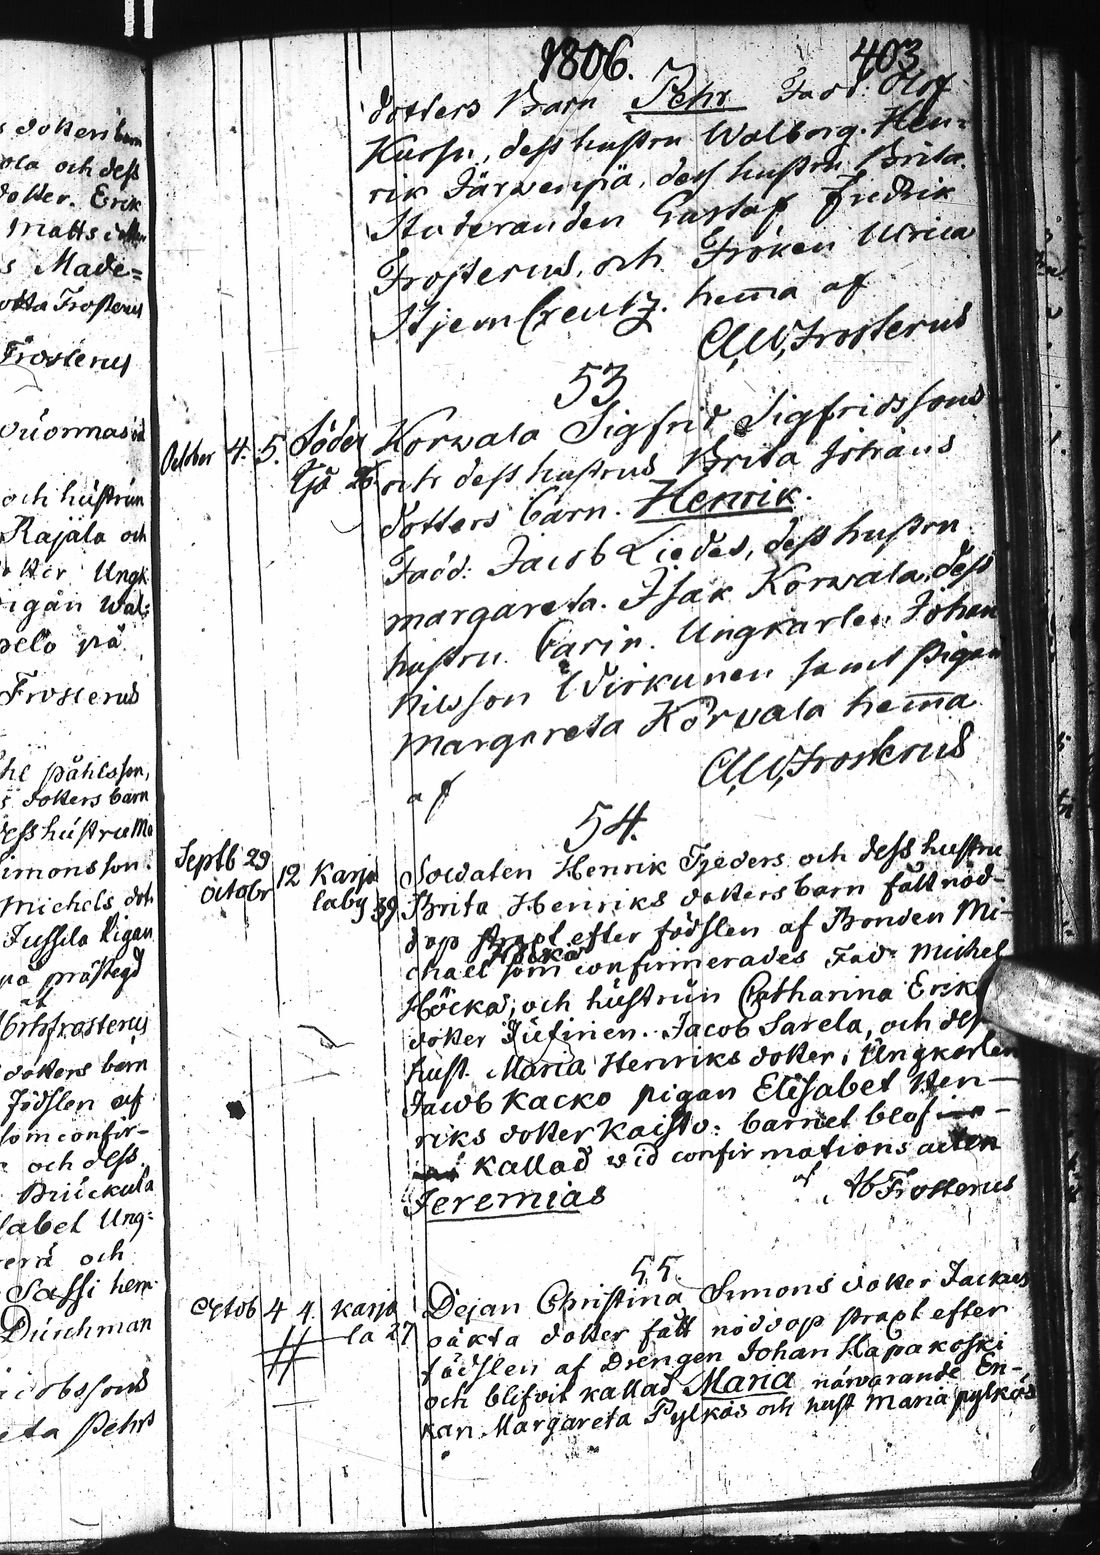 s dotters barn
ola och dess
dotter. Erik
Matts dotter
s Made=
otta Frosterus
Frosterus
och hustrun
Rajala och
dotter Ungk
igan Wal:
pelo på
Frosterus
hl Påhlsson,
s dotters barn
dess hustru Ma
Simonsson.
Michels dot
Jussila Pigan
på prästegd
dotters barn
födslen af
som confir-
a och dess
abel Ung=
och
Sassi hem
Dürchman
acobssons
eta Pehrs
1806. 403
dotters Barn Pehr Fadd: Olof
Kursu, dess hustru Walborg. Hen=
rik Järwenpä, dess hustru Brita.
Studeranden Gustaf Fredrik
Frosterus, och Fröken Ulrica
Stjerncreutz. hema af
C,W,Frosterus
53
October 4. 5. Söder
Korwala Sigfrid Sigfridssons
26 och dess hustrus Brita Johans
dotters barn. Henrik.
Fadd: Jacob Liedes, dess hustru
margareta. Isak Korwala, dess
hustru Carin. Ungkarlen Johan
Nilsson Wirkunen samt Pigan
Margareta Korwala hema
af C,W,Frosterus
54.
Septb 29 12 Karja
Soldaten Henrik Fjeders och dess hustru
octobr laby 39
Brita Henriks dotters barn fått nöd-
dop straxt efter födslen af Bonden Mi-
chael Höckä som confirmerades Fad: Michel
Höckä, och hustrun Catharina Eriks
doter Jufinen. Jacob Sarela, och dess
hust. Maria Henriks dotter; Ungkarlen
Jacob Kacko pigan Elisabet Hen-
riks dotter Kaisto: barnet blef
kallad wid confirmations acten
Jeremias af Frosterus
55.
Octob 4 4. Karja
Dejan Christina Simons dotter Jackus
la 27
oäkta dotter fått nöddop straxt efter
födslen af Drengen Johan Hapakoski
och blifvit kallad Maria närvarande En-
kan Margareta Pylkäs och hust Maria pylkäs